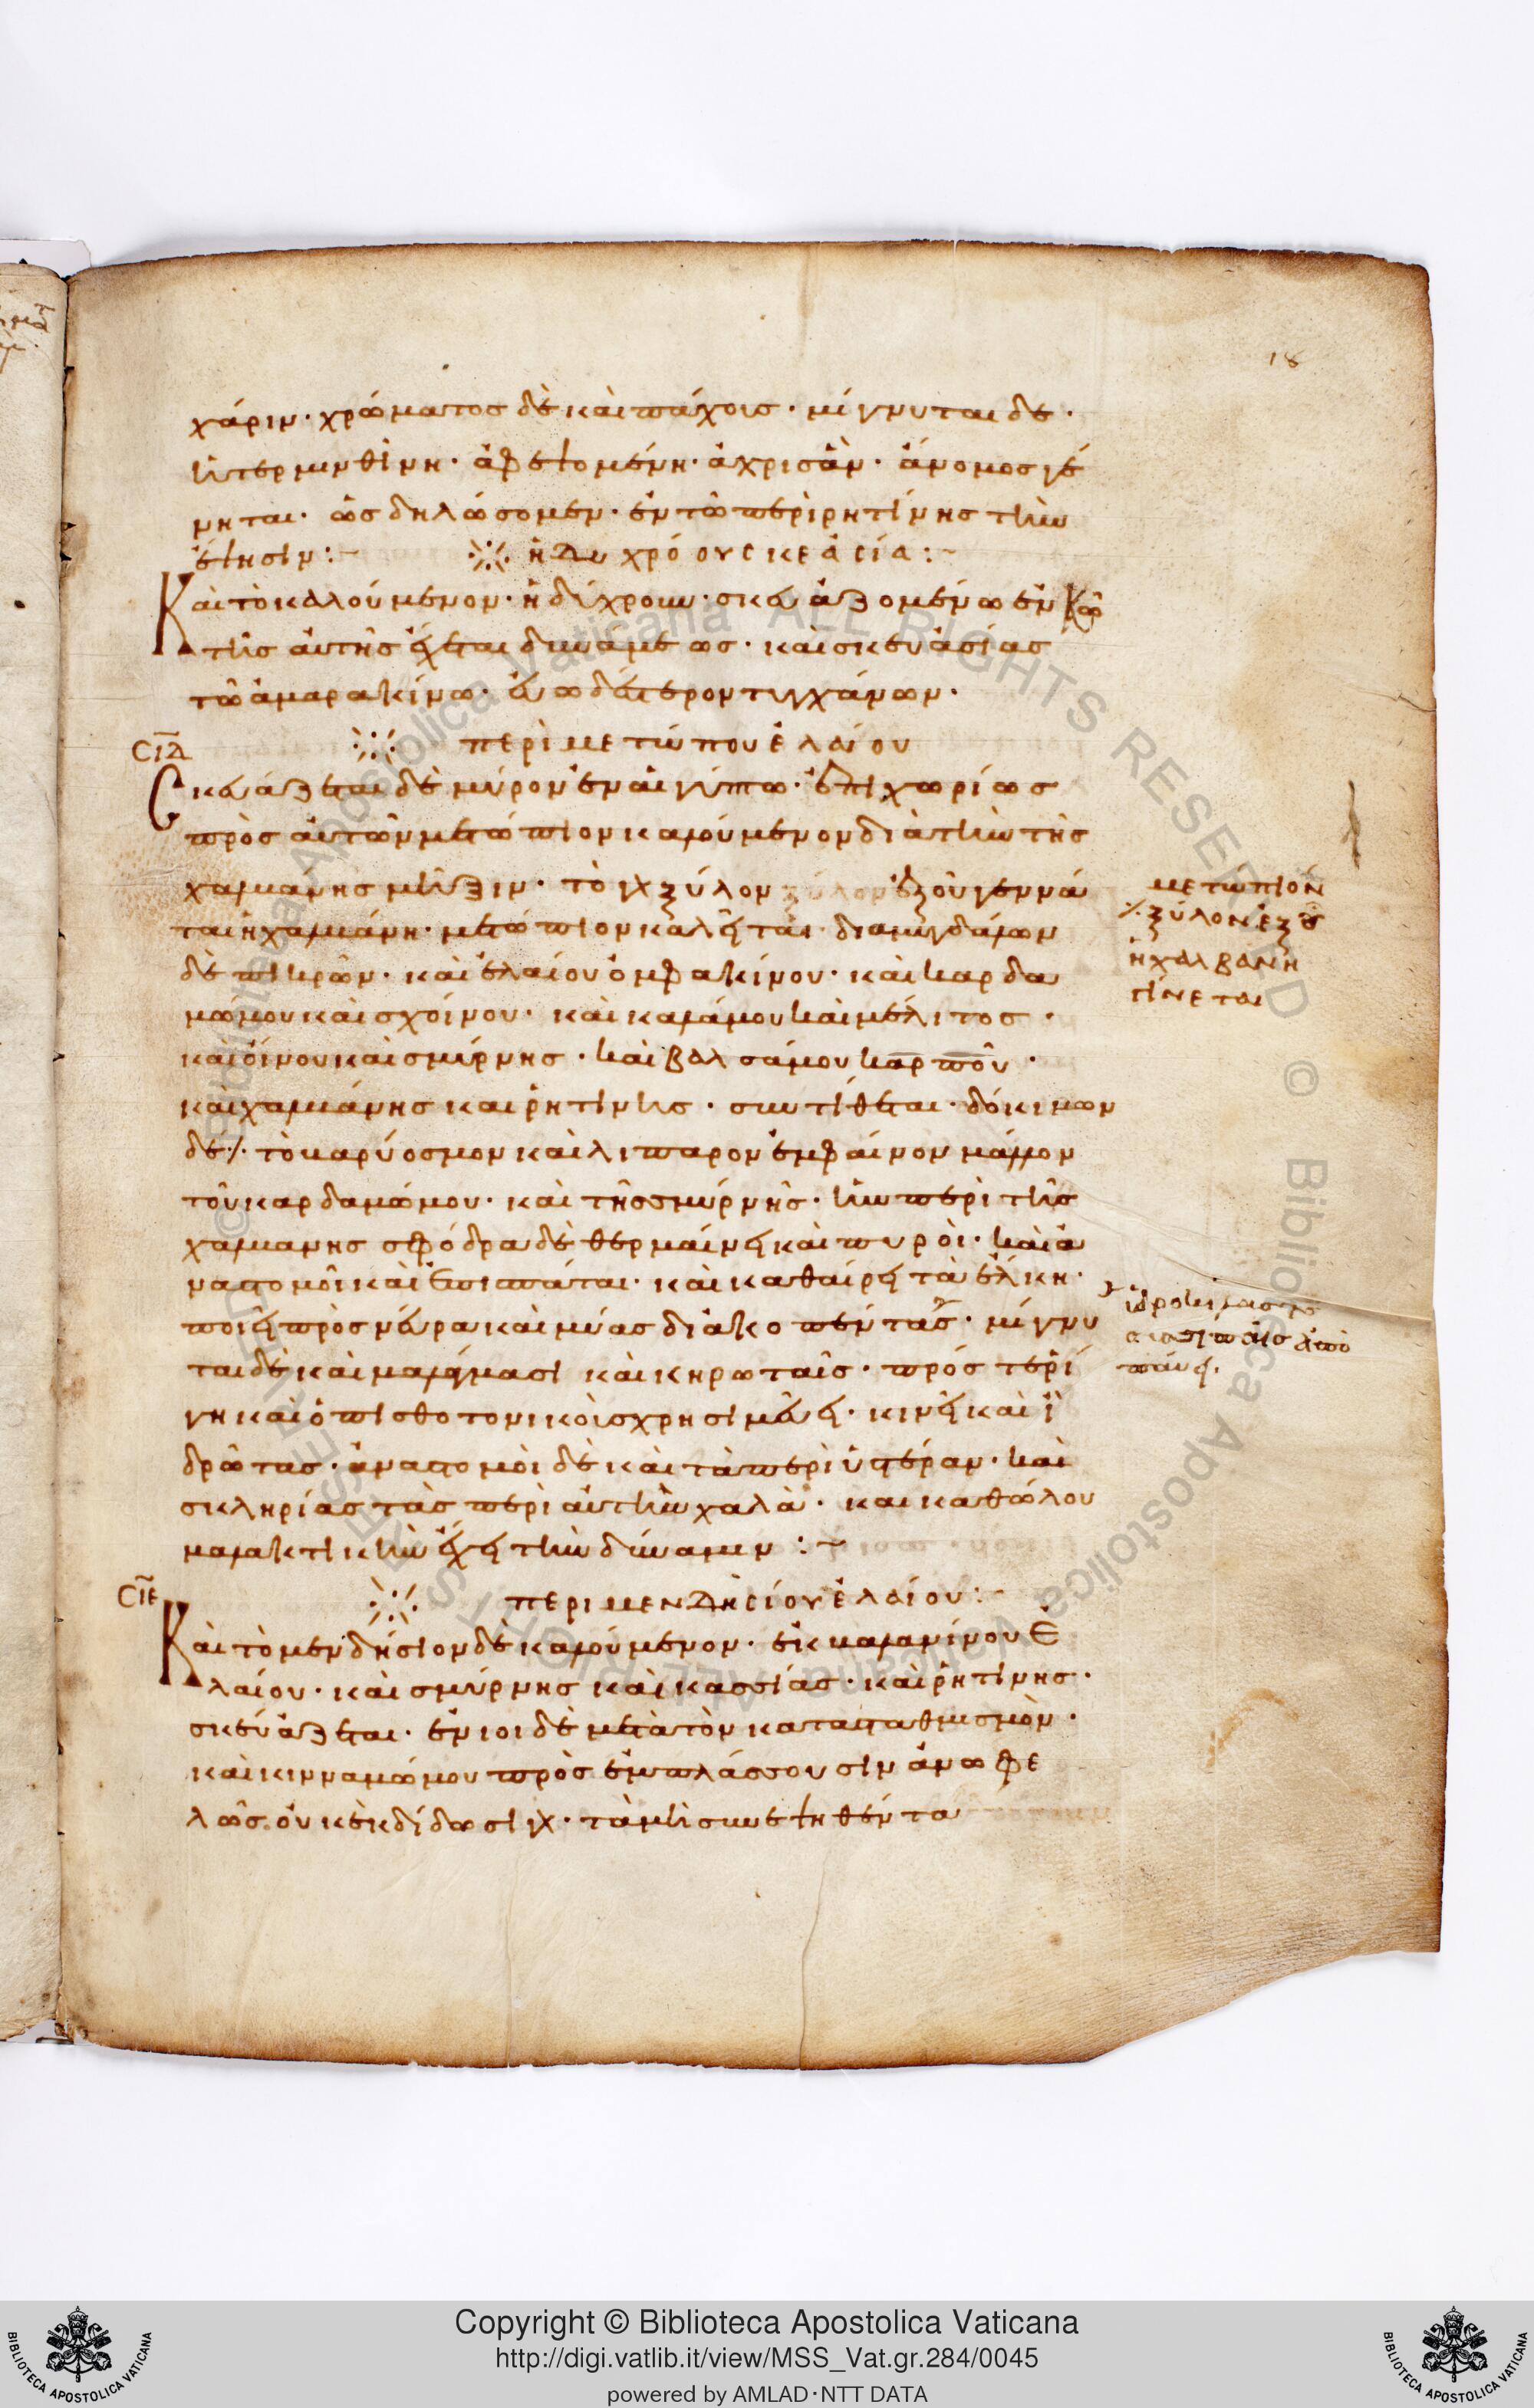 18
χάριν· χρώματος δὲ καὶ πάχους· μίγνυται δὲ·
ἡ τερμινθίνη· ἀφεψομένη· ἄχρις ἂν· ἄνοσμος γέ
νηται· ὡς δηλώσομεν· ἐν τῶ περὶ ρητίνης τὴν
ἕψησιν:~ ἡδυχρόου σκεβασία:~
Καὶ τὸ καλούμενον· ἡδύχρουν· σκευαζομένω ἐν Κῶ
τῆς αὐτῆς ἔχεται δυνάμεως· καὶ σκευασίας
τῶ ἀμαρακίνω· εὐωδέστερον τυγχάνων·
CΙΔ
περὶ μετώπου ἐλαίου
Σκευάζεται δὲ μύρον ἐν αἰγύπτω· ἐπιχωρίως
πρὸς αὐτῶν μετώπιον καλούμενον διὰ τὴν τῆς
χαλβάνης μῖξιν· τὸ γὰρ ξύλον ἐξ οὗ γεννᾶ
ται ἡ χαλβάνη· μετώπιον καλεῖται· δι ἀμυγδάλων
δὲ πικρῶν· καὶ ἐλαίου ὀμφακίνου· καὶ καρδα
μώμου καὶ σχοίνου· καὶ καλάμου καὶ μέλιτος·
καὶ οἴνου καὶ σμύρνης· καὶ βαλσάμου καρποῦ·
καὶ χαλβάνης καὶ ῥητίνης· συντίθεται· δόκιμων
δὲ ·/· τὸ βαρύοσμον καὶ λιπαρον ἐμφαίνον μάλλον
τοῦ καρδαμώμου· καὶ τῆς σμύρνης· ἥν περὶ τῆς
χαλβανης σφόδρα δὲ θερμαίνει καὶ πυροῖ· καὶ ἀ
ναστομοῖ καὶ ἐπισπάται· καὶ καθαίρει τὰ ἕλκη·
ποιεῖ πρὸς νεύρα καὶ μύας διακοπέντας· μίγνυ
ται δὲ καὶ μαλάγμασι καὶ κηρωταῖς· πρός τε ρί
γη καὶ ὀπισθοτονικοῖς χρησιμεύει· κινεῖ καὶ ἱ
δρῶτας· ἀναστομοῖ δὲ καὶ τὰ περὶ ὑστέραν· καὶ
σκληρίας τὰς περὶ αὐτὴν χαλὰ· και καθώλου
μαλακτικὴν ἔχει τὴν δύναμιν:~
CΙΕ
περὶ μενδησίου ἐλαίου:~
Καὶ τὸ μενδήσιον δὲ καλούμενον· ἐκ βαλανίνου ἐ
λαίου· καὶ σμύρνης καὶ κασσίας· καὶ ῥητίνης·
σκευάζεται· ἔνιοι δὲ μετὰ τὸν κατασταθμισμὸν·
καὶ κινναμώμου προσεμπλάσσουσιν ἀνωφε
λῶς. οὐκ ἐκδίδωσι γὰρ· τὰ μὴ συνεψηθέντα
μετώπιον
·/· ξύλον ἐξ οὗ
ἡ χαλβάνη
γίνεται